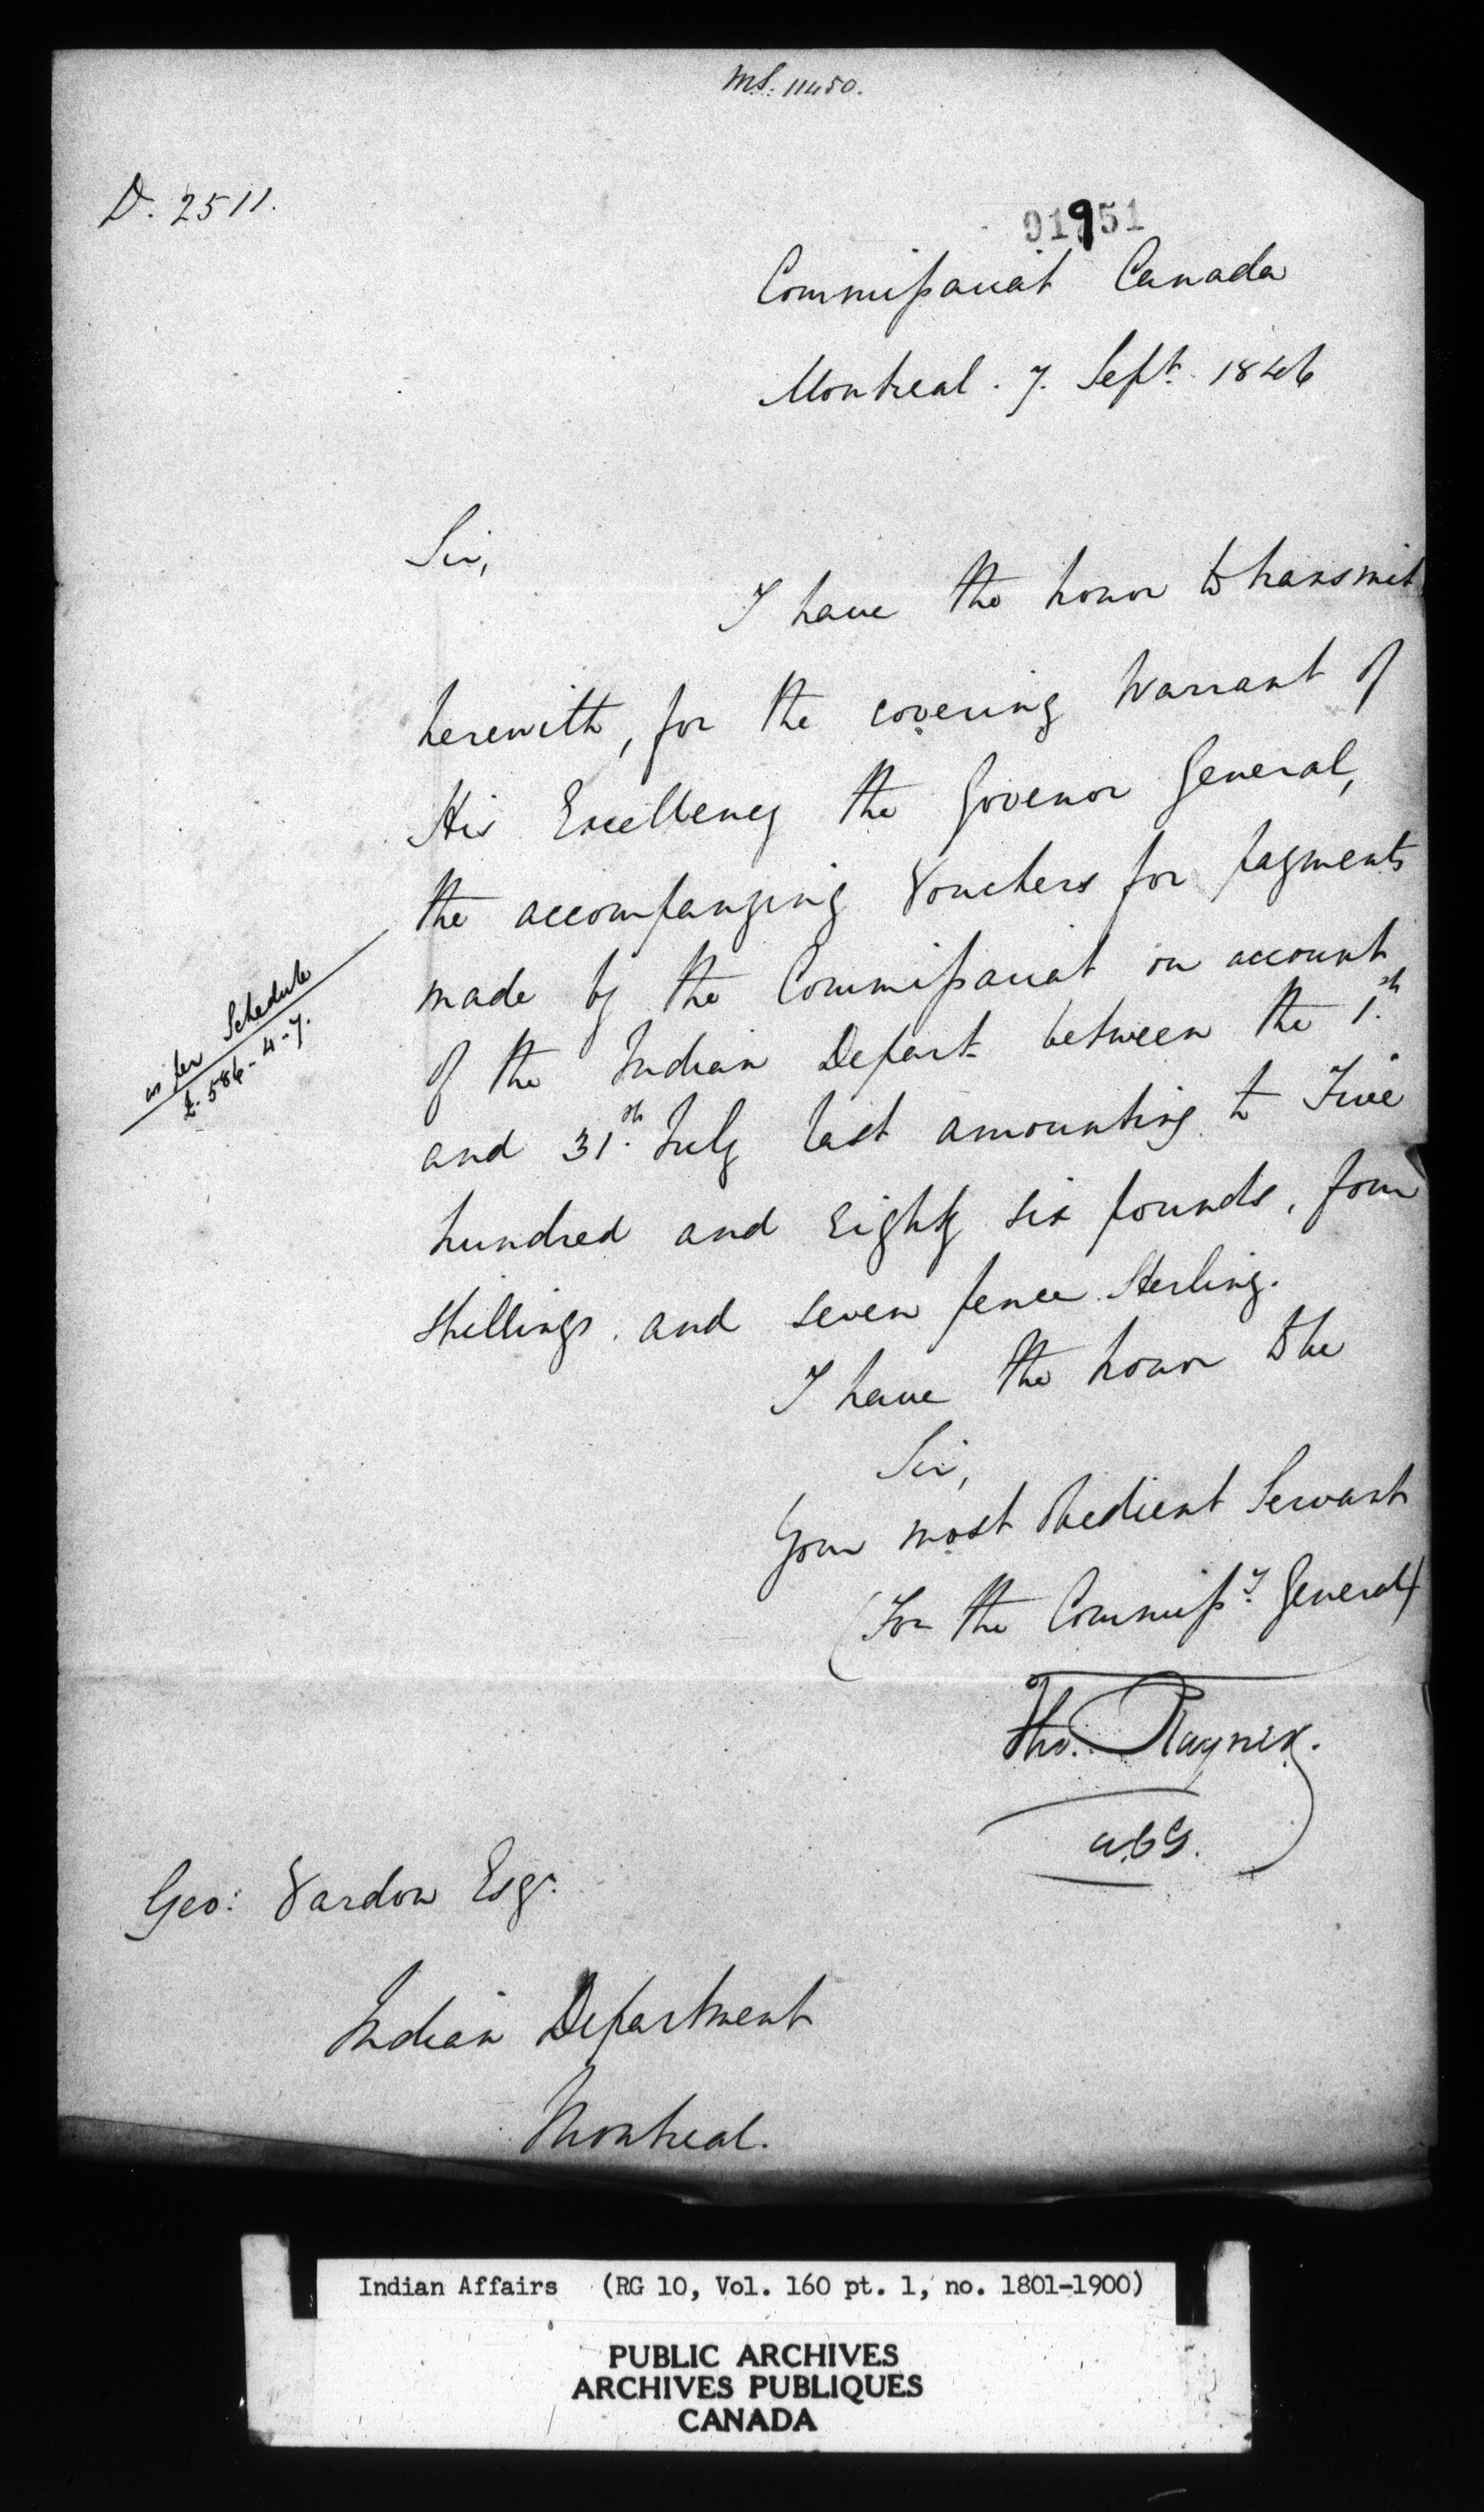 MS. 11450.
D. 2511.
91951
Commissariat Canada
Montreal. 7. Sept. 1846
Sir,
I have the honor to transmit
herewith, for the covering Warrant of
His Excellency the Govenor General,
the accompanying Vouchers for payments
made by the Commissariat on account
of the Indian Depart. between the 1.st
and 31.st July last amounting to Five
hundred and Eighty six pounds, four
shillings and seven pence Sterling.
as per Schedule
£.586-4-7.
I have the honor to be
Sir,
Your most obedient Servant
(For the Commissy. General)
Tho. Rayner.
ACG.
Geo: Vardon Esqr.
Indian Department
Montreal.
Indian Affairs (RG 10, Vol. 160 pt. 1, no. 1801-1900)
PUBLIC ARCHIVES
ARCHIVES PUBLIQUES
CANADA